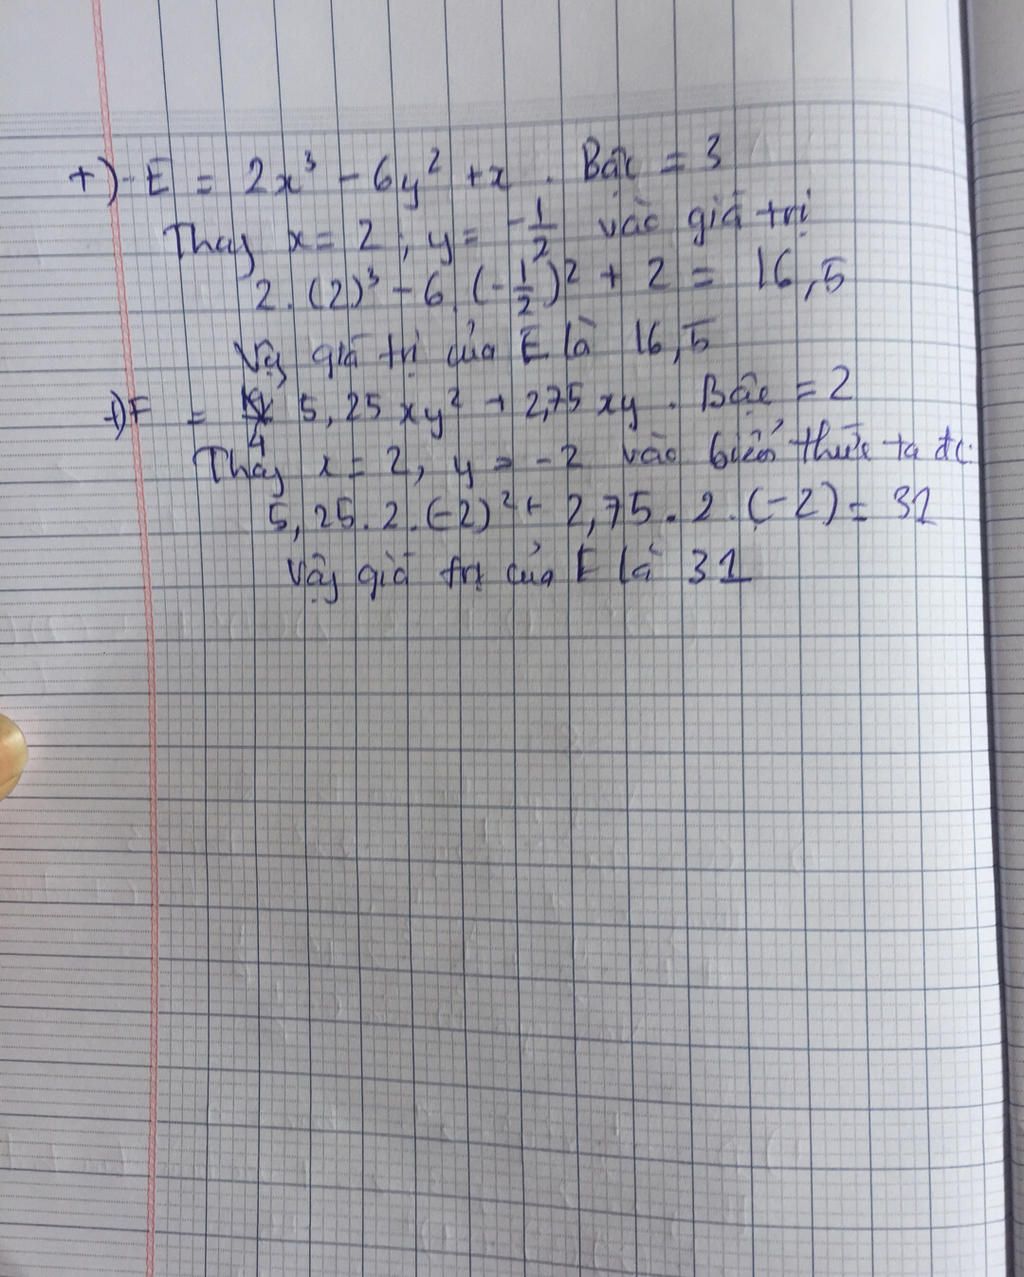 +) - E = 2x³ - 6y² + x . Bậc = 3
Thay x = 2 ; y = -1/2 vào giá trị
2 . (2)³ - 6 . (-1/2)² + 2 = 16,5
Vậy giá trị của E là 16,5
+) F = 5,25 xy² + 2,75 xy . Bậc = 2
Thay x = 2, y = -2 vào biển thức ta đc:
5,25 . 2 . (-2)² + 2,75 . 2 . (-2) = 31
Vậy giá trị của E là 31